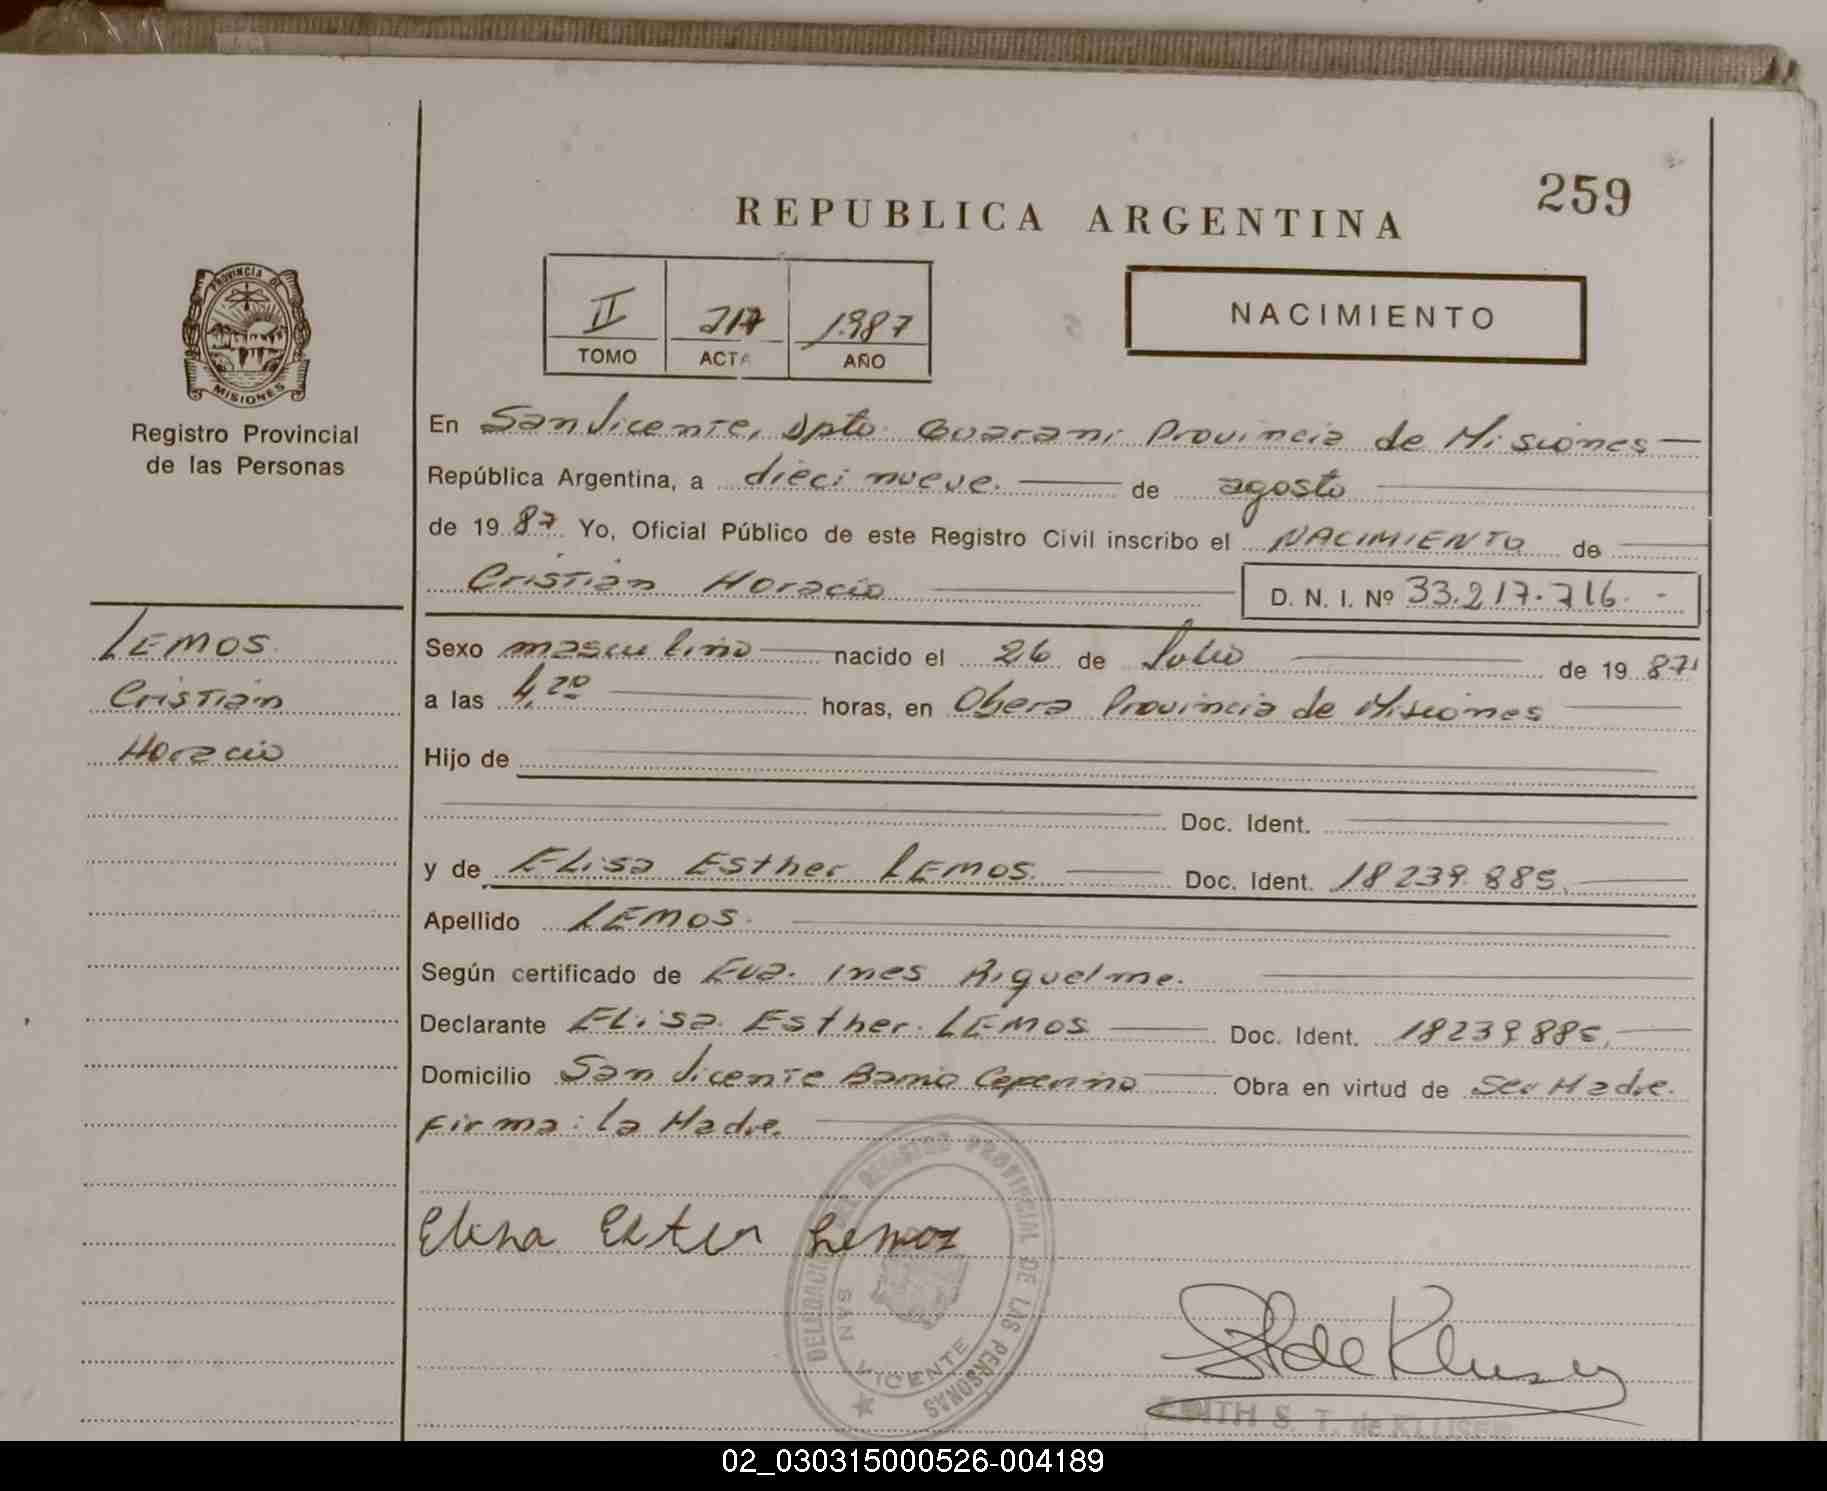 259
REPUBLICA ARGENTINA
II 217 1987
TOMO ACTA AÑO
NACIMIENTO
PROVINCIA DE
MISIONES
Registro Provincial
de las Personas
En San Vicente, Dpto. Guarani Provincia de Misiones
República Argentina, a dieci nueve. de agosto
de 19 87 Yo, Oficial Público de este Registro Civil inscribo el NACIMIENTO de
Cristian Horacio D. N. I. Nº 33.217.716. -
LEMOS
Cristian
Horacio
Sexo masculino nacido el 26 de Julio de 19 87
a las 4,20 horas, en Obera Provincia de Misiones
Hijo de
Doc. Ident.
y de Elisa Esther LEMOS. Doc. Ident. 18239.885.
Apellido LEMOS.
Según certificado de Eva. Ines Riquelme.
Declarante Elisa. Esther. LEMOS Doc. Ident. 18239885.
Domicilio San Vicente Barrio Ceperino Obra en virtud de Ser Madre.
Firma: la Madre.
DELEGACION DEL REGISTRO PROVINCIAL DE LAS PERSONAS
SAN VICENTE
Elisa Ester Lemos
de Kluser
EDITH S. T. de KLUSER
02_030315000526-004189